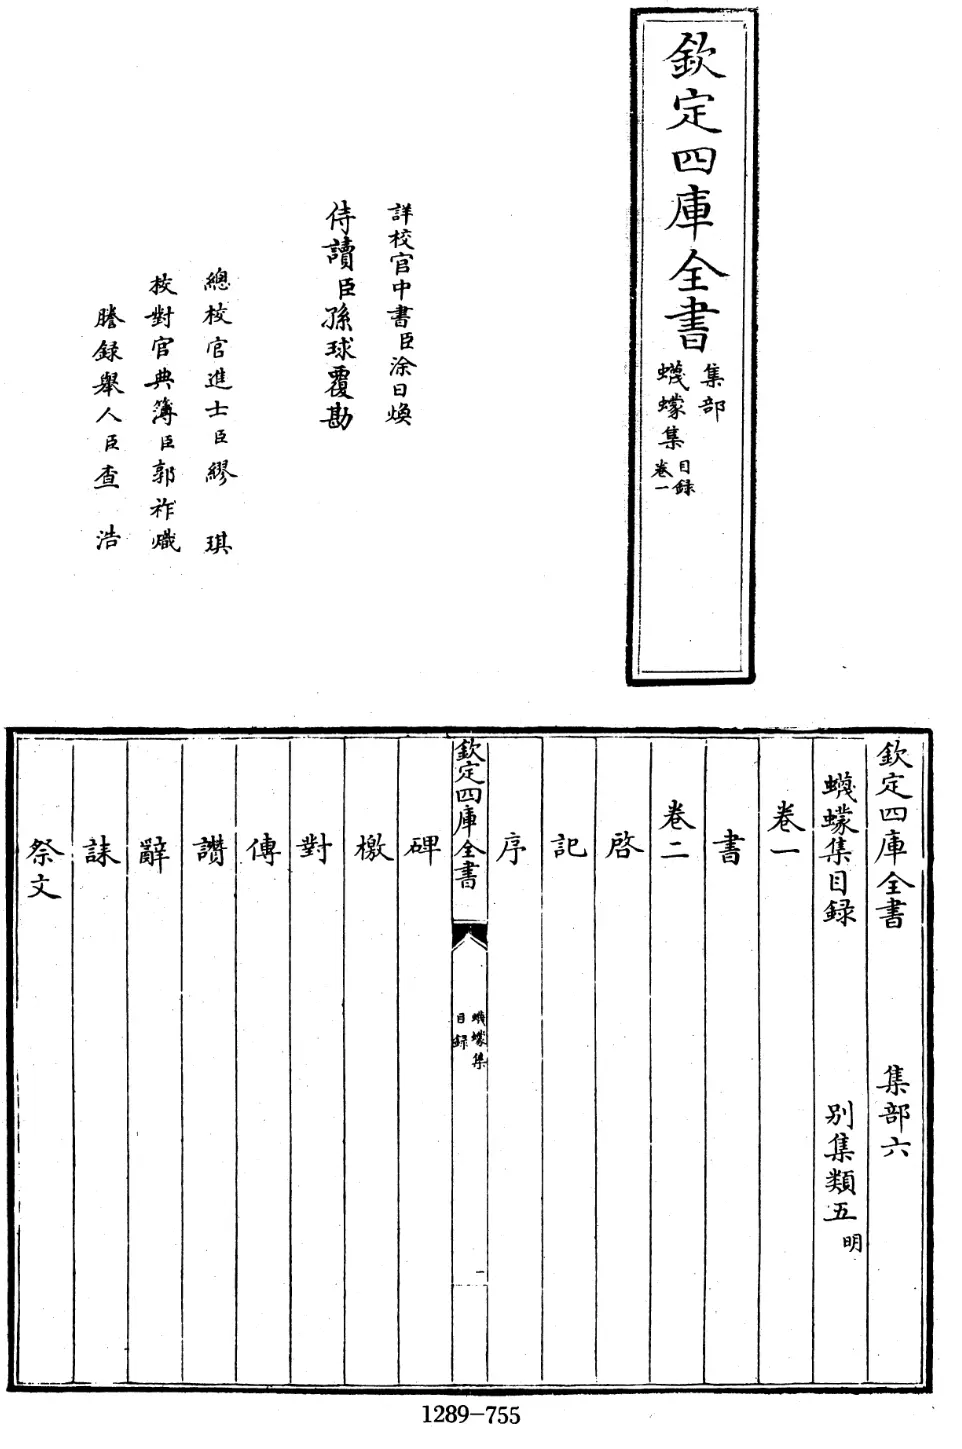 欽定四庫全書
集部
蠛蠓集
目録
卷一
詳校官中書臣涂日煥
侍讀臣孫球覆勘
總校官進士臣繆琪
校對官典簿臣郭祚熾
謄録舉人臣查浩
欽定四庫全書 集部六
蠛蠓集目録 別集類五 明
卷一
書
卷二
啓
記
序
欽定四庫全書
蠛蠓集
目録
一
碑
檄
對
傳
讃
辭
誄
祭文
1289-755